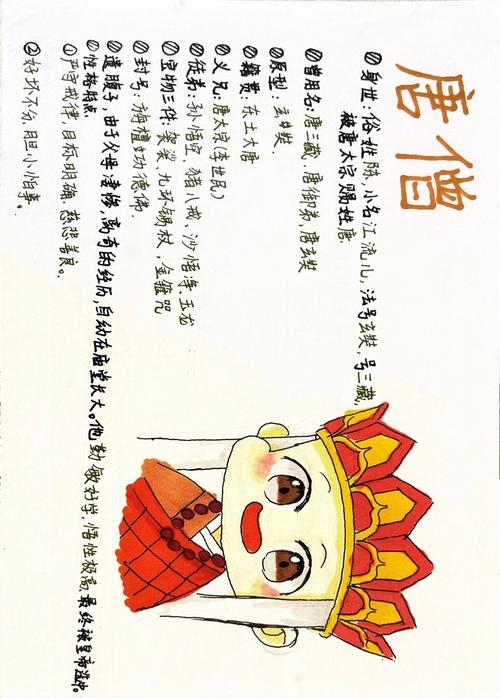 唐僧
①身世：俗姓陈，小名江流儿，法号玄奘，号三藏，
被唐太宗赐姓唐
②曾用名：唐三藏，唐御弟，唐玄奘
③原型：玄奘.
④籍贯：东土大唐
⑤义兄：唐太宗(李世民)
⑥徒弟：孙悟空、猪八戒、沙悟净、玉龙
⑦宝物三件：袈裟、九环锡杖，金箍咒
⑧封号：旃檀功德佛.
⑨遗腹子，由于父母凄惨，离奇的经历，自幼在庙堂长大。他勤敏好学，悟性极高，最终被皇帝选中。
⑩性格特点
①严守戒律，目标明确，慈悲善良。
②好坏不分，胆小怕事。